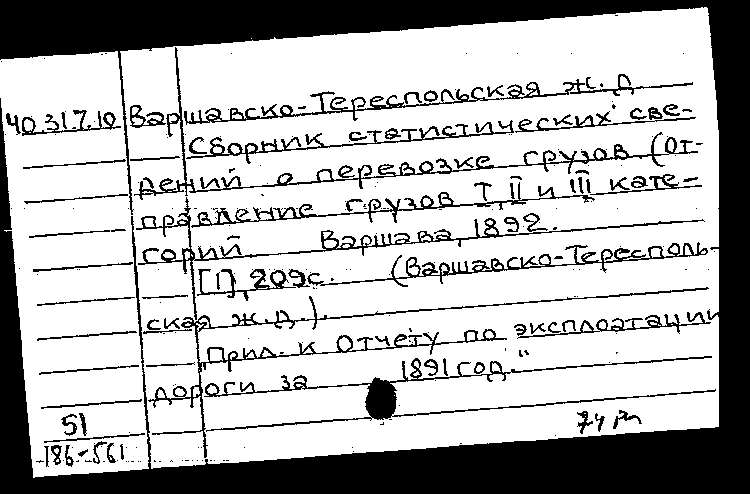 40.31.7.10 Варшавско-Тереспольская ж.д
Сборник статистических све-
дений о перевозке грузов (от-
правление грузов I, II и III кате-
горий. Варшава, 1892.
[1], 209с. (Варшавско-Тересполь-
ская ж.д.).
"Прил. к Отчету по эксплоатации
дороги за 1891 год."
51
186-561